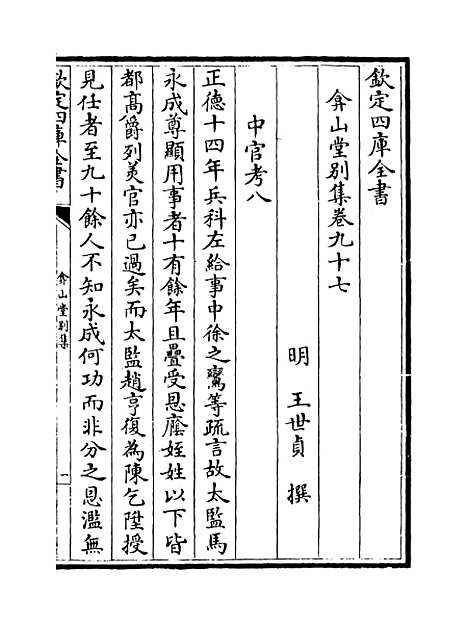 欽定四庫全書
弇山堂别集卷九十七
明 王世貞 撰
中官考八
正德十四年兵科左給事中徐之鸞等疏言故太監馬
永成尊顯用事者十有餘年且疊受恩廕姪姓以下皆
都髙爵列美官亦已過矣而太監趙亨復為陳乞陞授
見任者至九十餘人不知永成何功而非分之恩濫無
欽定四庫全書
弇山堂别集
一